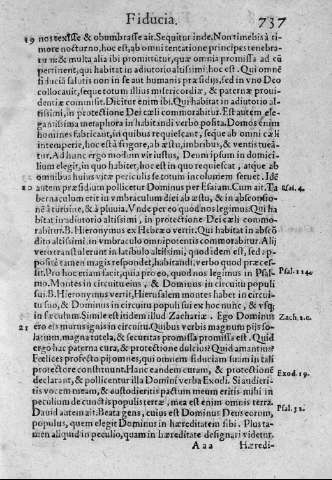 Fiducia. 737
19 nos texisse & obumbrasse ait. Sequitur inde. Non timebis à ti-
more nocturno, hoc est, ab omni tentatione principes tenebra-
rum: & multa alia ibi promittūtur, quæ omnia promissa ad eū
pertinent, qui habitat in adiutorio altissimi hoc est. Qui omnē
fiduciā salutis non in se aut humanis præsidijs, sed in vno Deo
collocauit, seque totum illius misericordiæ, & paternæ proui-
dentiæ commisit. Dicitur enim ibi. Qui habitat in adiutorio al-
tissimi, in protectione Dei cæli commorabitur. Est autem ele-
gantissima metaphora in habitandi verbo posita. Domos enim
homines fabricant, in quibus requiescant, seque ab omni cæli
intemperie, hoc est à frigore, ab æstu, imbribus, & ventis tueā-
tur. Ad hunc ergo modum vir iustus, Deum ipsum in domici-
lium elegit, in quo habitet, hoc est in quo requiescat, atque ab
omnibus huius vitæ periculis se totum incolumem seruet. Idē
20 autem præsidium pollicetur Dominus per Esaiam. Cum ait. Ta
Esai. 4.
bernaculum erit in vmbraculum diei ab æstu, & in absconsio-
nē à turbine, & à pluuia. Vnde per eo quod nos legimus. Qui ha
bitat in adiutorio altissimi, in protectione Dei cæli commo-
rabitur. B. Hieronymus ex Hebræo vertit. Qui habitat in abscō
dito altissimi, in vmbraculo omnipotentis commorabitur. Alij
vero transtulerunt in latibulo altissimi, quod idem est, sed ap-
posite tamen magis respondet, habitandi, verbo quod præces-
sit. Pro hoc etiam facit, quia pro eo, quod nos legimus in Psal-
Psal. 114.
mo. Montes in circuitu eius, & Dominus in circuitu populi
sui. B. Hieronymus vertit, Hierusalem montes habet in circui-
tu suo, & Dominus in circuitu populi sui ex hoc nunc, & vsq;
in sæculum. Simile est itidem illud Zachariæ. Ego Dominus
Zach. 2.
21 ero eis murus ignis in circuitu. Quibus verbis magnum pijs so-
larium, magna tutela, & securitas promissa promissa est. Quid
ergo hac paterna cura, & protectione dulcius? Quid amantius?
Fœlices profecto pij omnes, qui omnem fiduciam suam in tali
protectore constituunt. Hanc eandem curam, & protectionē
declarant, & pollicentur illa Domini verba Exodi. Si audieri-
Exod. 19.
tis vocem meam, & custodieritis pactum meum eritis mihi in
peculium de cunctis populis terræ, mea est enim omnis terra.
David autem ait. Beata gens, cuius est Dominus Deus eorum,
Psal. 32.
populus, quem elegit Dominus in hæreditatem sibi. Plus ta-
men aliquid in peculio, quam in hæreditate designari videtur.
A a a Hæredi-